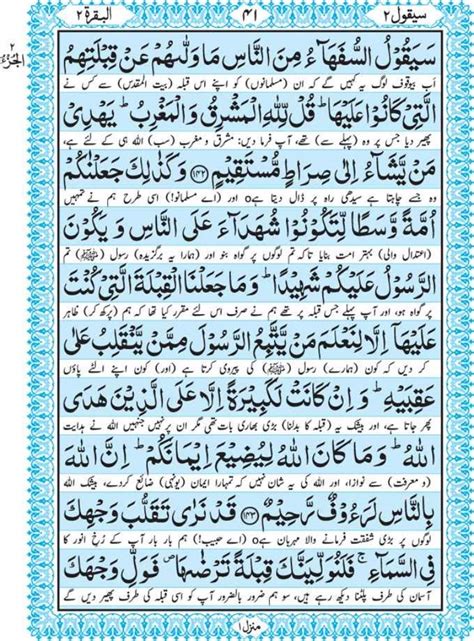 البقرۃ ٢
٤١
سیقول ٢
الجزء ٢
سَيَقُوْلُ السُّفَهَآءُ مِنَ النَّاسِ مَا وَلّٰىهُمْ عَنْ قِبْلَتِهِمُ
اَب بیوقوف لوگ یہ کہیں گے کہ ان (مسلمانوں) کو اپنے اس قبلہ (بیت المقدس) سے کس نے
الَّتِيْ كَانُوْا عَلَيْهَا ؕ قُلْ لِّلّٰهِ الْمَشْرِقُ وَ الْمَغْرِبُ ؕ يَهْدِيْ
پھیر دیا جس پر وہ (پہلے سے) تھے، آپ فرما دیں: مشرق و مغرب (سب) اللہ ہی کے لئے ہے،
مَنْ يَّشَآءُ اِلٰى صِرَاطٍ مُّسْتَقِيْمٍ ﴿١٤٢﴾ وَ كَذٰلِكَ جَعَلْنٰكُمْ
وہ جسے چاہتا ہے سیدھی راہ پر ڈال دیتا ہے o اور (اے مسلمانو!) اسی طرح ہم نے تمہیں
اُمَّةً وَّسَطًا لِّتَكُوْنُوْا شُهَدَآءَ عَلَى النَّاسِ وَ يَكُوْنَ
(اعتدال والی) بہتر امت بنایا تاکہ تم لوگوں پر گواہ بنو اور (ہمارا یہ برگزیدہ) رسول (ﷺ) تم
الرَّسُوْلُ عَلَيْكُمْ شَهِيْدًا ؕ وَ مَا جَعَلْنَا الْقِبْلَةَ الَّتِيْ كُنْتَ
پر گواہ ہو، اور آپ پہلے جس قبلہ پر تھے ہم نے صرف اس لئے مقرر کیا تھا کہ ہم (پرکھ کر) ظاہر
عَلَيْهَاۤ اِلَّا لِنَعْلَمَ مَنْ يَّتَّبِعُ الرَّسُوْلَ مِمَّنْ يَّنْقَلِبُ عَلٰى
کر دیں کہ کون (ہمارے) رسول (ﷺ) کی پیروی کرتا ہے (اور) کون اپنے الٹے پاؤں
عَقِبَيْهِ ؕ وَ اِنْ كَانَتْ لَكَبِيْرَةً اِلَّا عَلَى الَّذِيْنَ هَدَى
پھر جاتا ہے، اور بیشک یہ (قبلہ کا بدلنا) بڑی بھاری بات تھی مگر ان پر نہیں جنہیں اللہ نے ہدایت
اللّٰهُ ؕ وَ مَا كَانَ اللّٰهُ لِيُضِيْعَ اِيْمَانَكُمْ ؕ اِنَّ اللّٰهَ
(و معرفت) سے نوازا، اور اللہ کی یہ شان نہیں کہ تمہارا ایمان (یونہی) ضائع کردے، بیشک اللہ
بِالنَّاسِ لَرَءُوْفٌ رَّحِيْمٌ ﴿١٤٣﴾ قَدْ نَرٰى تَقَلُّبَ وَجْهِكَ
لوگوں پر بڑی شفقت فرمانے والا مہربان ہے o (اے حبیب!) ہم بار بار آپ کے رُخِ انور کا
فِي السَّمَآءِ ۚ فَلَنُوَلِّيَنَّكَ قِبْلَةً تَرْضٰىهَا ۪ فَوَلِّ وَجْهَكَ
آسمان کی طرف پلٹنا دیکھ رہے ہیں، سو ہم ضرور بالضرور آپ کو اسی قبلہ کی طرف پھیر دیں گے
منزل ١